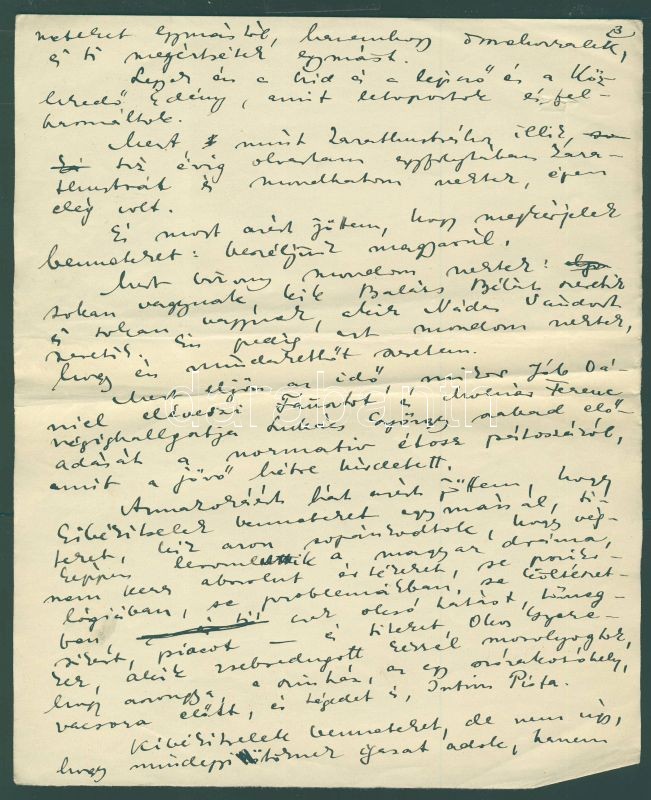 3
neteket egymástól, hanemhogy
és ti megértsétek egymást.
Legyek én a híd és a lépcső és a Köz-
lekedő Edény, amit letapostok és fel-
használtok.
Mert, mint Zarathustrához illik,
tiz évig olvastam egyfolytában Zara-
thustrát és mondhatom nektek, épen
elég volt.
És most azért jöttem, hogy megkérjelek
benneteket: beszéljünk magyarul.
Mert bizony mondom nektek:
sokan vagynak, kik Balázs Bélát szeretik
és sokan vagynak, akik Nádas Sándort
szeretik. Én pedig azt mondom nektek,
hogy én mindakettőt szeretem.
Mert eljön az idő, mikor Jób Dá-
niel előveszi Faustot, és Molnár Ferenc
végighallgatja Lukács György szabad elő-
adását a normativ étosz pátoszáról,
amit a jövő hétre hirdetett.
Annakokáért hát azért jöttem, hogy
kibékitselek benneteket egymással, ti-
teket, kik azon sopánkodtok, hogy vég-
képpen leromlik a magyar dráma,
nem keres abszolut értéket, se pszicho-
lógiában, se problémákban, se költészet-
ben csak olcsó hatást, tömeg-
sikert, piacot — és titeket Okos Gyere-
kek, akik zsebredugott kézzel mosolyogtok,
hogy aszongya, a szinház, az egy szórakozóhely,
vacsora előtt, és tégedet is, Intim Pista.
Kibékitselek benneteket, de nem úgy,
hogy mindegyitöknek igazat adok, hanem
darabanth